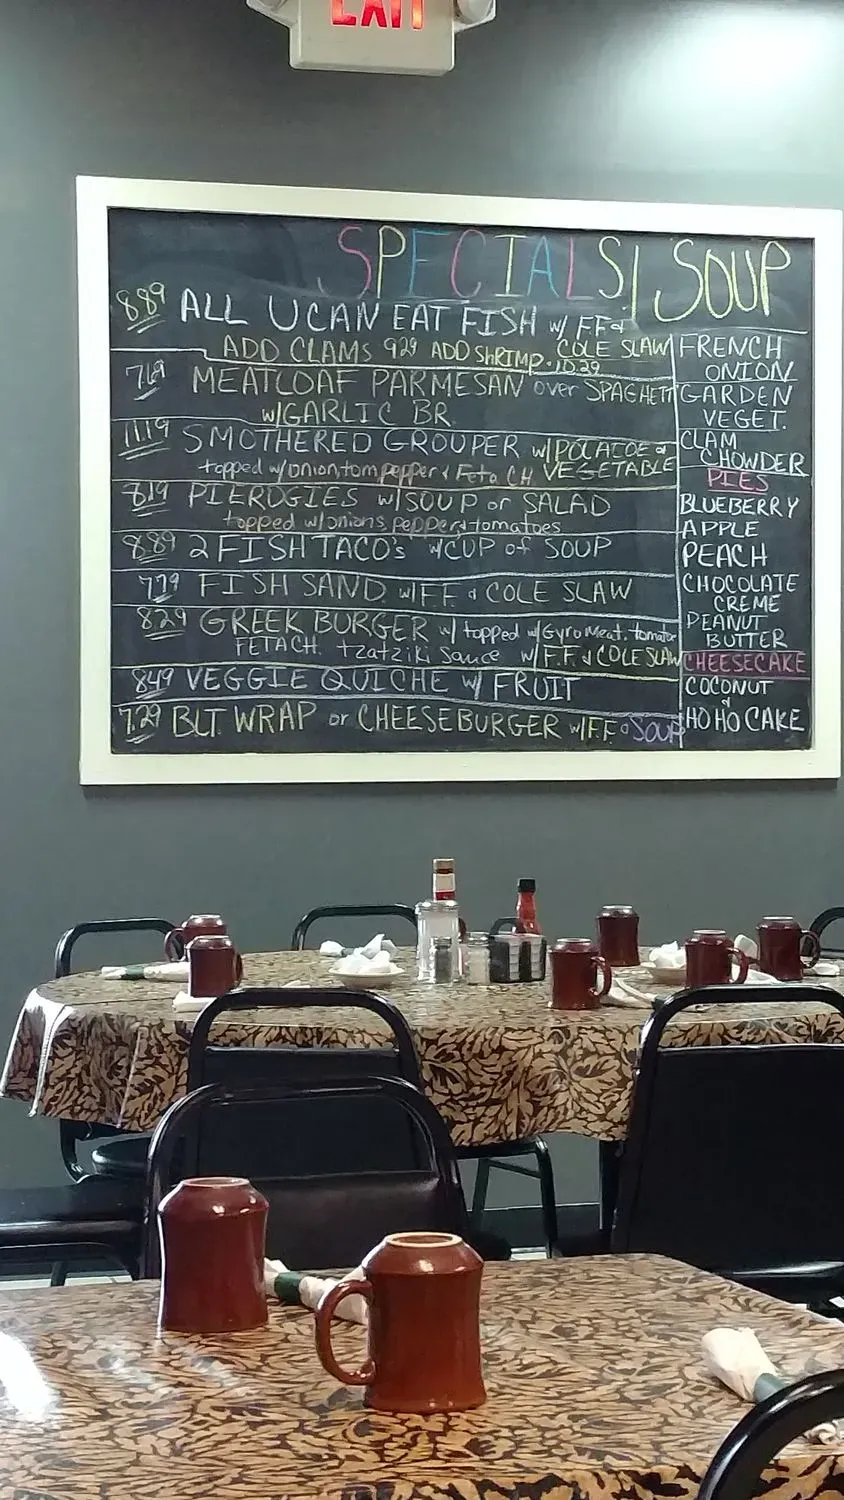 EXIT
SPECIALS | SOUP
8.89 ALL U CAN EAT FISH w/ FF &
COLE SLAW
ADD CLAMS 9.29 ADD SHRIMP. 10.29
7.69 MEATLOAF PARMESAN over SPAGHETTI
w/GARLIC BR.
11.19 SMOTHERED GROUPER w/POTATOE &
VEGETABLE
topped w/onion, tom, pepper & Feta CH.
8.19 PIEROGIES w/SOUP or SALAD
topped w/onions, pepper & tomatoes
8.89 2 FISH TACO's w/CUP of SOUP
7.79 FISH SAND. w/F.F. & COLE SLAW
8.29 GREEK BURGER w/ topped w/Gyro Meat. tomatoe
FETA CH. tzatziki sauce w/F.F. & COLE SLAW
8.49 VEGGIE QUICHE w/ FRUIT
7.29 BLT. WRAP or CHEESEBURGER w/F.F. & SOUP
FRENCH
ONION
GARDEN
VEGET.
CLAM
CHOWDER
PIES
BLUEBERRY
APPLE
PEACH
CHOCOLATE
CREME
PEANUT
BUTTER
CHEESECAKE
COCONUT
&
HO HO CAKE